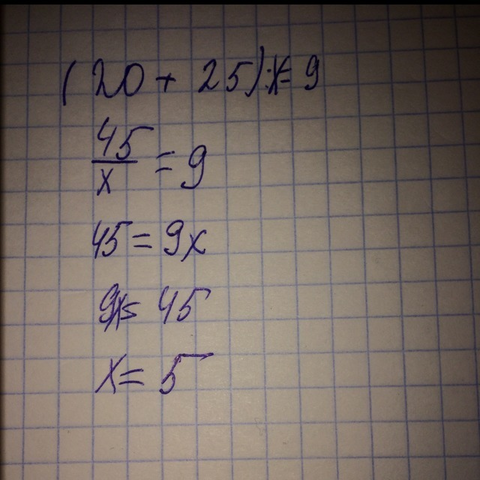 (20 + 25):x=9
45/x = 9
45 = 9x
9x= 45
x= 5